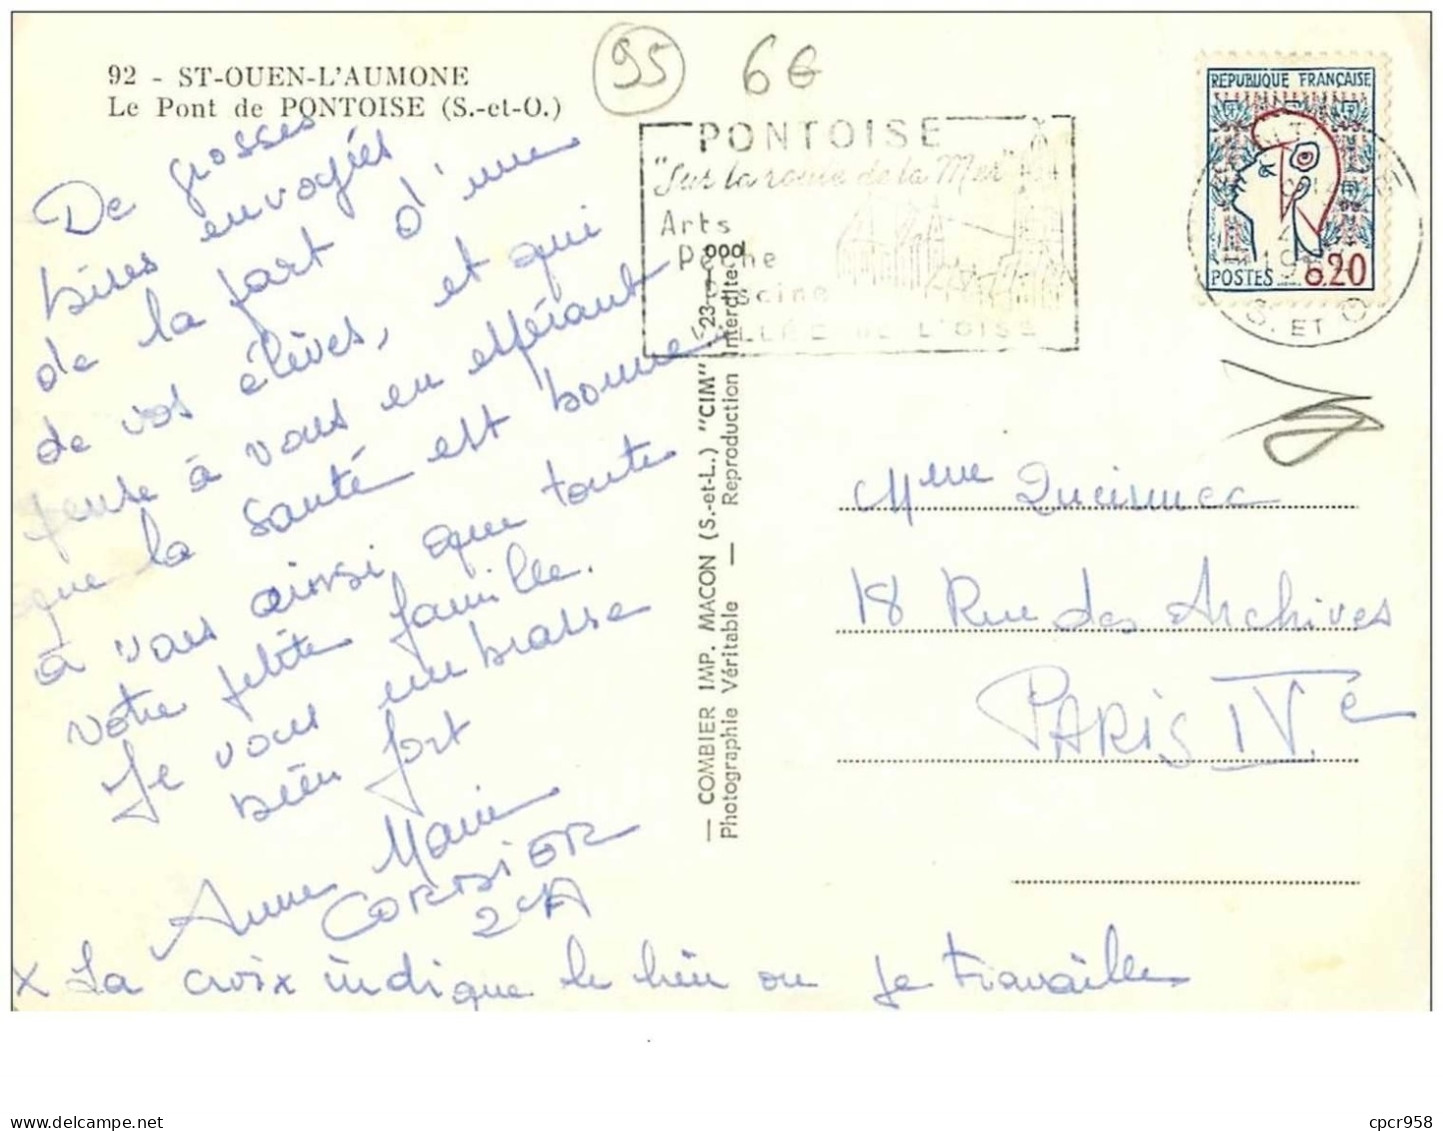 92 - ST-OUEN-L'AUMONE
Le Pont de PONTOISE (S.-et-O.)
95
6€
PONTOISE
"Sur la route de la Mer"
Arts
Pêche
Piscine
VALLÉE DE L'OISE
REPUBLIQUE FRANÇAISE
POSTES 0.20
S. ET O.
De grosses
bises envoyées
de la part d'une
de vos élèves, et qui
pense à vous en espérant
que la santé est bonne
à vous ainsi que toute
votre petite famille.
Je vous embrasse
bien fort
Anne Marie
CORDIER
2eA
x La croix indique le lieu ou je travaille
— COMBIER IMP. MACON (S.-et-L.) "CIM"
Photographie Véritable — Reproduction Interdite
Mme Queinnec
18 Rue des Archives
PARIS IVe
cpcr958